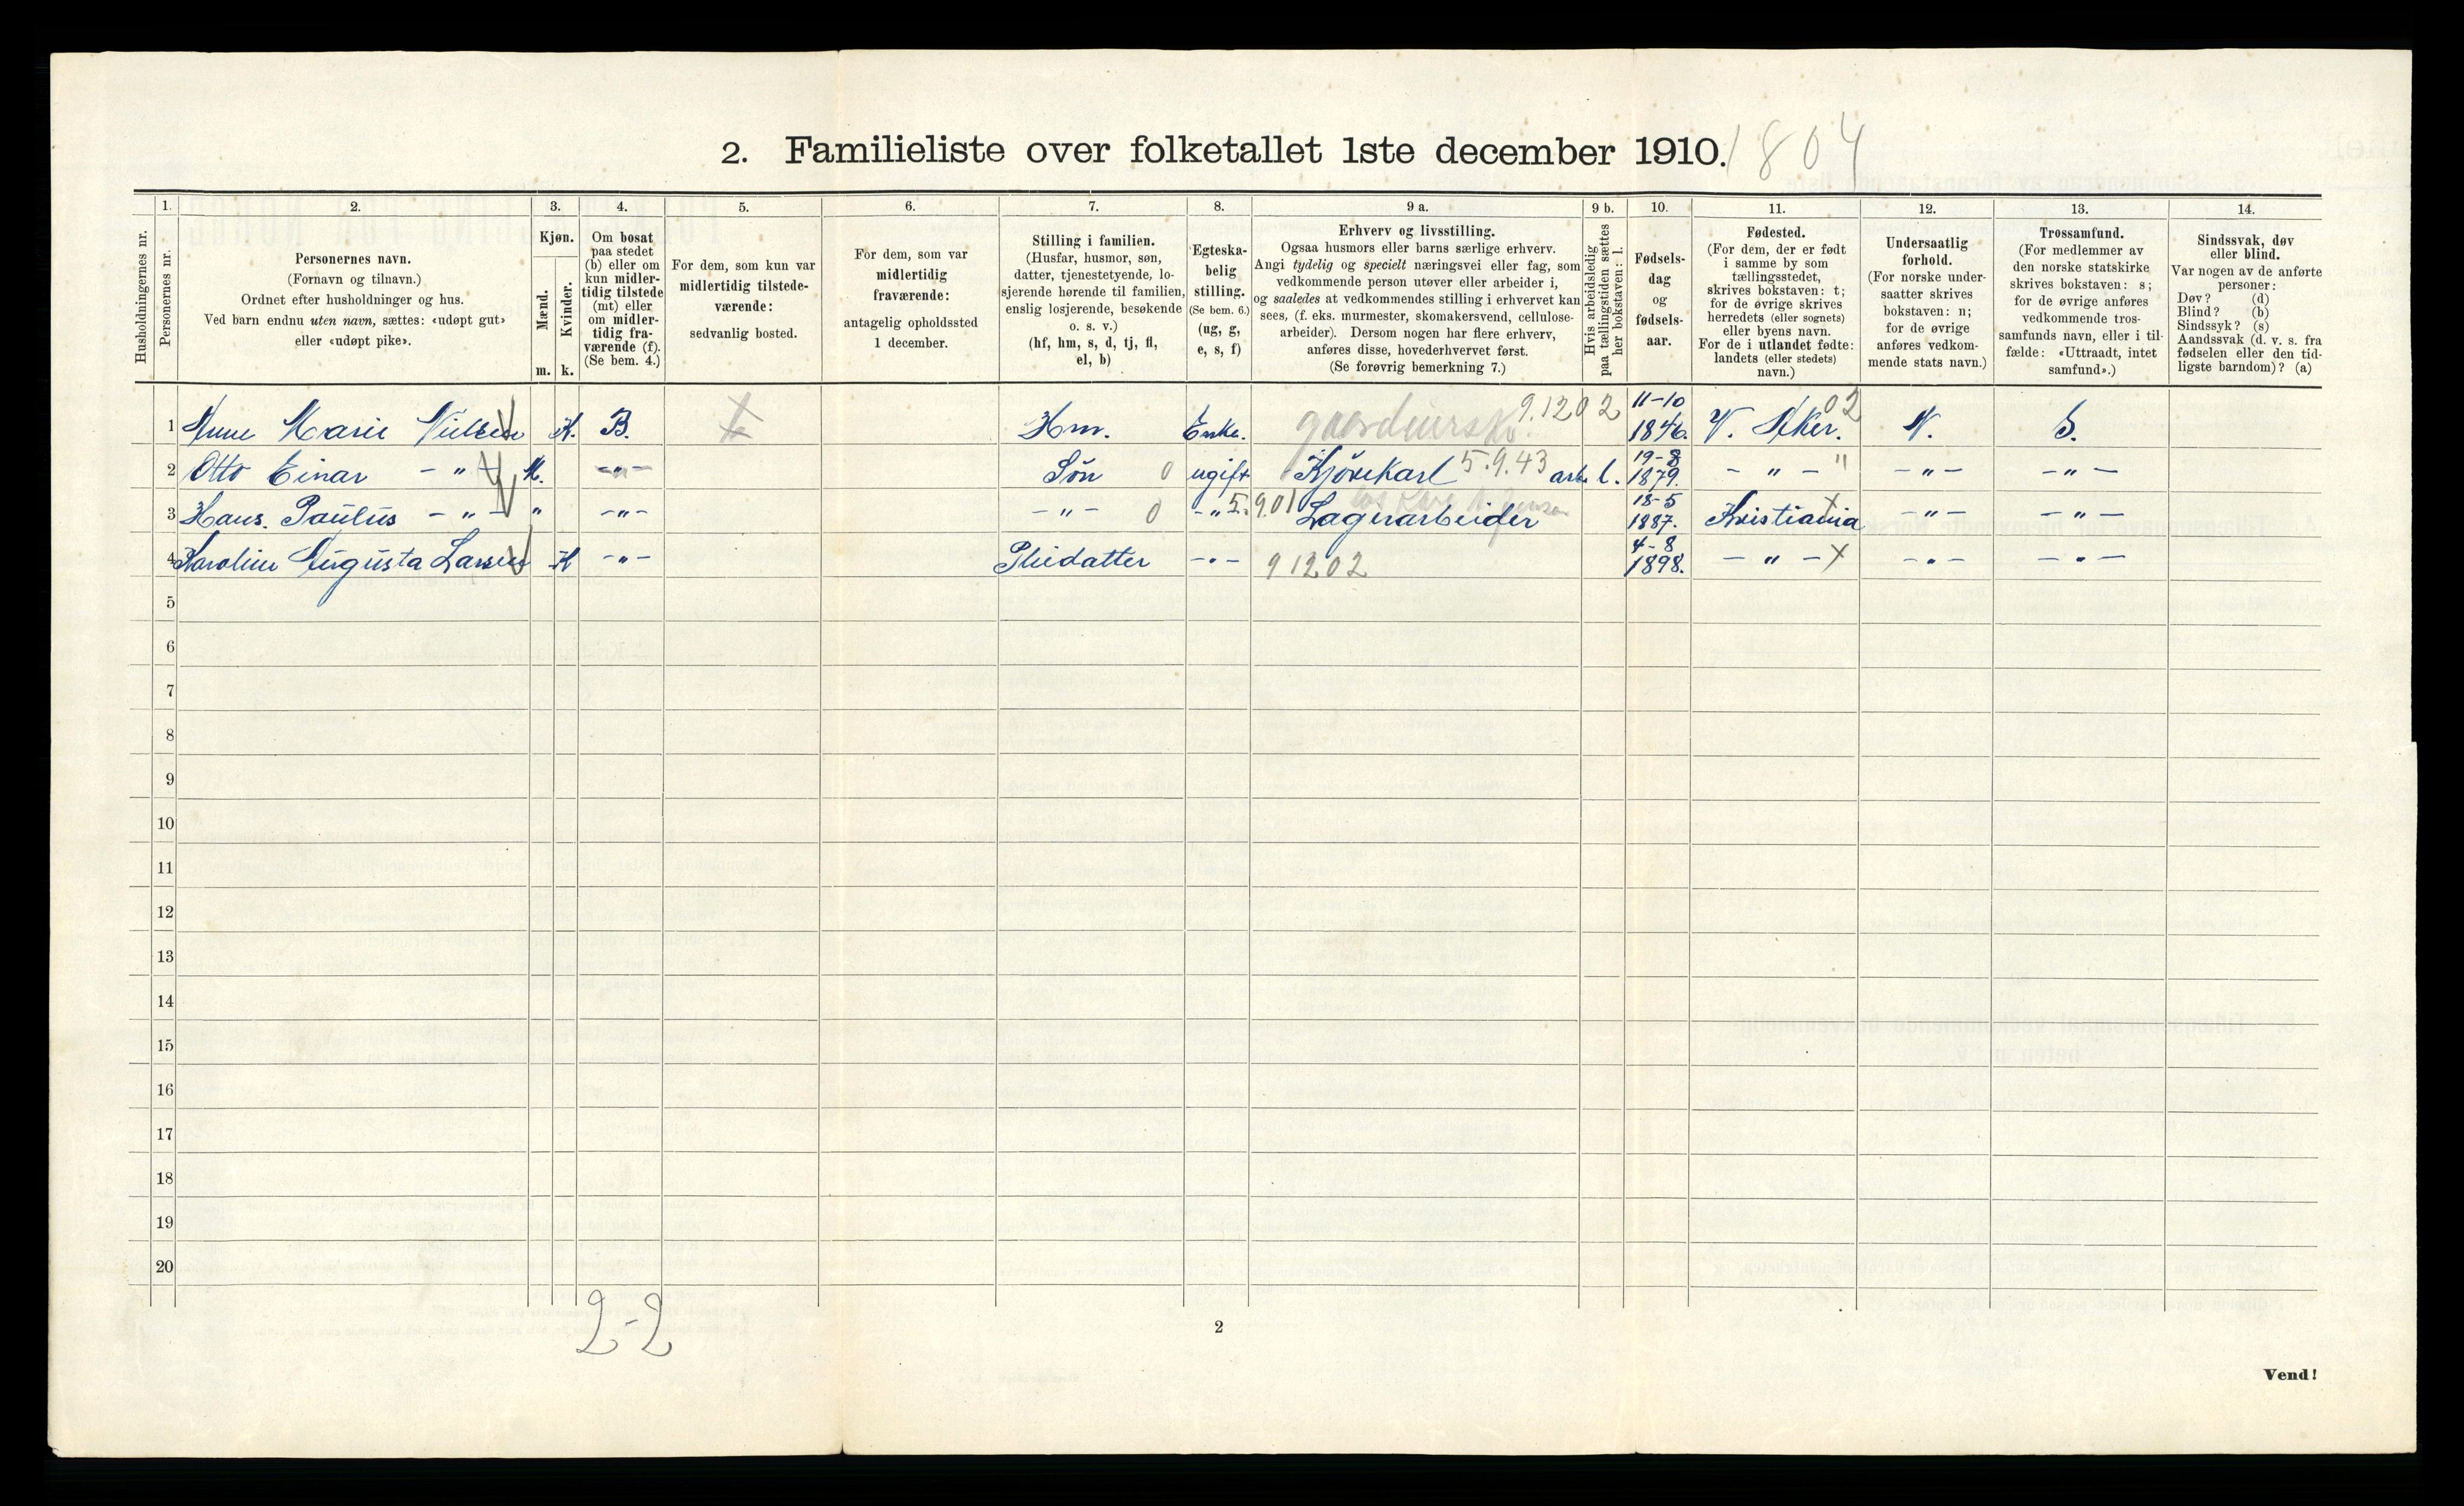 2. Familieliste over folketallet 1ste december 1910. 1804
Husholdningernes nr.
1. Personernes nr.
2. Personernes navn.
(Fornavn og tilnavn.)
Ordnet efter husholdninger og hus.
Ved barn endnu uten navn, sættes: «udøpt gut»
eller «udøpt pike».
3. Kjøn.
Mænd. Kvinder.
m. k.
4. Om bosat
paa stedet
(b) eller om
kun midler-
tidig tilstede
(mt) eller
om midler-
tidig fra-
værende (f).
(Se bem. 4.)
5. For dem, som kun var
midlertidig tilstede-
værende:
sedvanlig bosted.
6. For dem, som var
midlertidig
fraværende:
antagelig opholdssted
1 december.
7. Stilling i familien.
(Husfar, husmor, søn,
datter, tjenestetyende, lo-
sjerende hørende til familien,
enslig losjerende, besøkende
o. s. v.)
(hf, hm, s, d, tj, fl,
el, b)
8. Egteska-
belig
stilling.
(Se bem. 6.)
(ug, g,
e, s, f)
9 a. Erhverv og livsstilling.
Ogsaa husmors eller barns særlige erhverv.
Angi tydelig og specielt næringsvei eller fag, som
vedkommende person utøver eller arbeider i,
og saaledes at vedkommendes stilling i erhvervet kan
sees, (f. eks. murmester, skomakersvend, cellulose-
arbeider). Dersom nogen har flere erhverv,
anføres disse, hovederhvervet først.
(Se forøvrig bemerkning 7.)
9 b. Hvis arbeidsledig
paa tællingstiden sættes
her bokstaven: l.
10. Fødsels-
dag
og
fødsels-
aar.
11. Fødested.
(For dem, der er født
i samme by som
tællingsstedet,
skrives bokstaven: t;
for de øvrige skrives
herredets (eller sognets)
eller byens navn.
For de i utlandet fødte:
landets (eller stedets)
navn.)
12. Undersaatlig
forhold.
(For norske under-
saatter skrives
bokstaven: n;
for de øvrige
anføres vedkom-
mende stats navn.)
13. Trossamfund.
(For medlemmer av
den norske statskirke
skrives bokstaven: s;
for de øvrige anføres
vedkommende tros-
samfunds navn, eller i til-
fælde: «Uttraadt, intet
samfund».)
14. Sindssvak, døv
eller blind.
Var nogen av de anførte
personer:
Døv? (d)
Blind? (b)
Sindssyk? (s)
Aandssvak (d. v. s. fra
fødselen eller den tid-
ligste barndom)? (a)
1 Anne Marie Nielsen K. B. Hm. Enke. 9.1202 11-10 1846. V. Aker. 02 N. S.
2 Otto Einar - " - M. - " - Søn 0 ugift Kjørekarl 5.9.43 arb. l. 19-8 1879. - " - " - " - - " -
3 Hans. Paulus - " - " - " - - " - 0 - " - 5.9.01 Lagerarbeider 18-5 1887. Kristiania - " - - " -
4 Karoline Augusta Larsen K - " - Pleiedatter - " - 91202 4-8 1898. - " - - " - - " -
5
6
7
8
9
10
11
12
13
14
15
16
17
18
19
20
2-2
2
Vend!